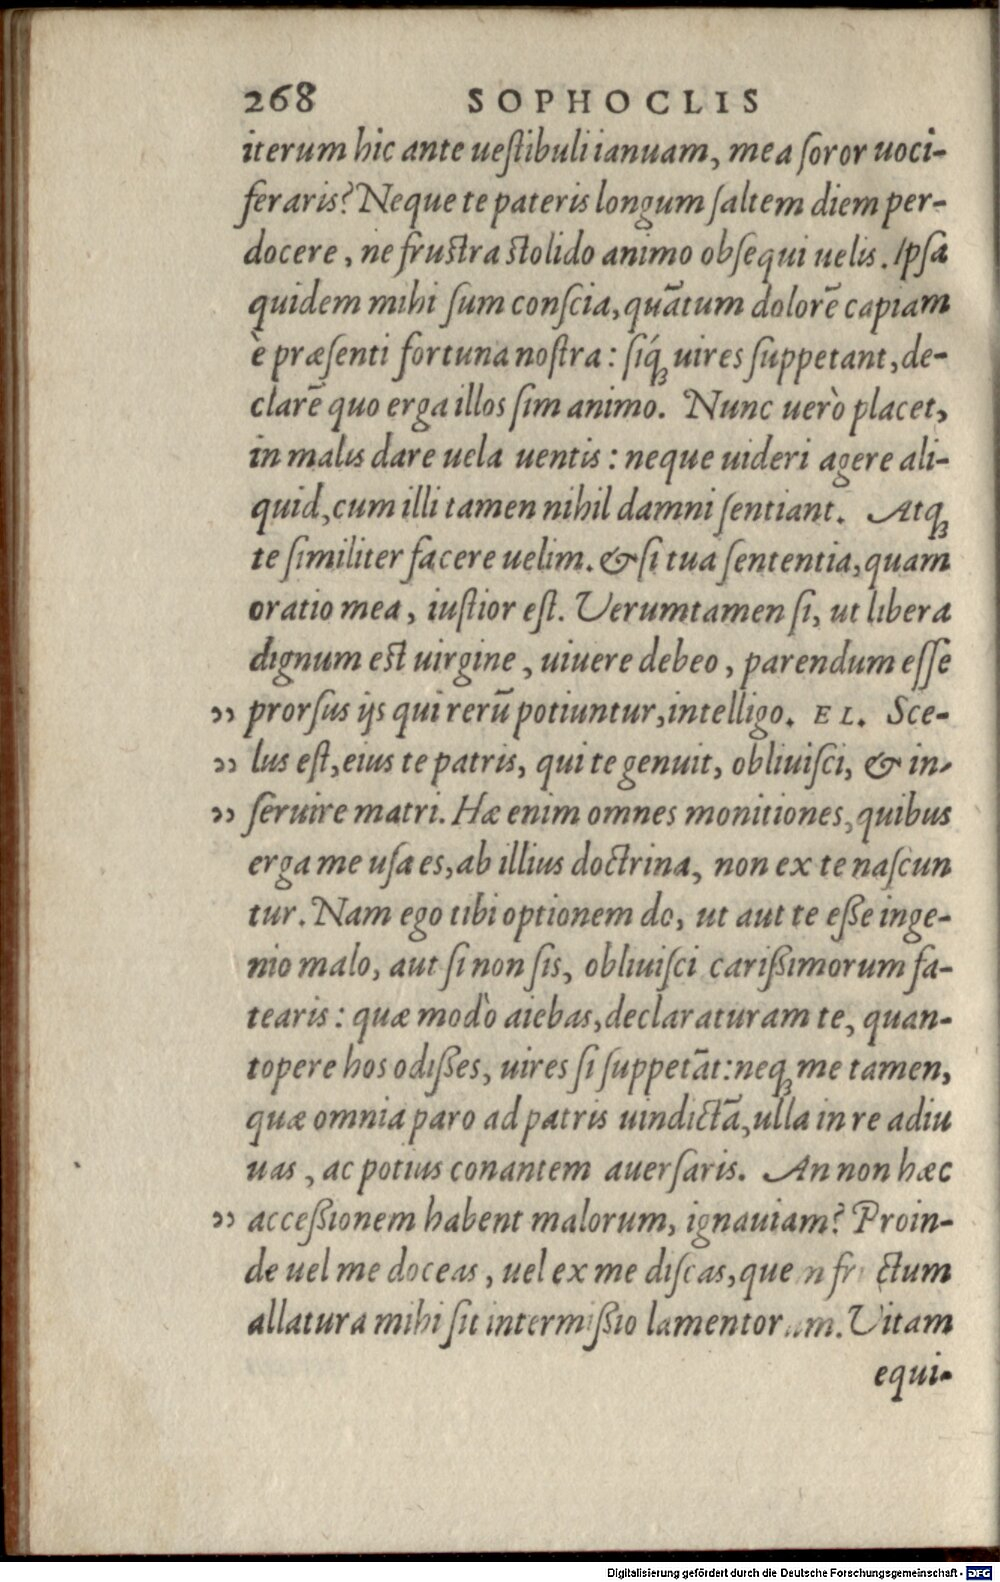 268 SOPHOCLIS
iterum hic ante ueſtibuli ianuam, mea ſoror uoci-
feraris? Neque te pateris longum ſaltem diem per-
docere, ne fruſtra ſtolido animo obſequi uelis. Ipſa
quidem mihi ſum conſcia, quãtum dolorẽ capiam
è præſenti fortuna noſtra: ſiq́ꝫ uires ſuppetant, de-
clarẽ quo erga illos ſim animo. Nunc uerò placet,
in malis dare uela uentis: neque uideri agere ali-
quid, cum illi tamen nihil damni ſentiant. Atqꝫ
te ſimiliter facere uelim. & ſi tua ſententia, quam
oratio mea, iuſtior eſt. Verumtamen ſi, ut libera
dignum eſt uirgine, uiuere debeo, parendum eſſe
„ prorſus ijs qui rerũ potiuntur, intelligo. EL. Sce-
„ lus eſt, eius te patris, qui te genuit, obliuiſci, & in-
„ ſeruire matri. Hæ enim omnes monitiones, quibus
erga me uſa es, ab illius doctrina, non ex te naſcun
tur. Nam ego tibi optionem do, ut aut te eſße inge-
nio malo, aut ſi non ſis, obliuiſci carißimorum fa-
tearis: quæ modò aiebas, declaraturam te, quan-
topere hos odißes, uires ſi ſuppetãt: neqꝫ me tamen,
quæ omnia paro ad patris uindictã, ulla in re adiu
uas, ac potius conantem auerſaris. An non hæc
„ acceßionem habent malorum, ignauiam? Proin-
de uel me doceas, uel ex me diſcas, ctum
allatura mihi ſit intermißio lamentorum. Vitam
equi-
Digitalisierung gefördert durch die Deutsche Forschungsgemeinschaft - DFG